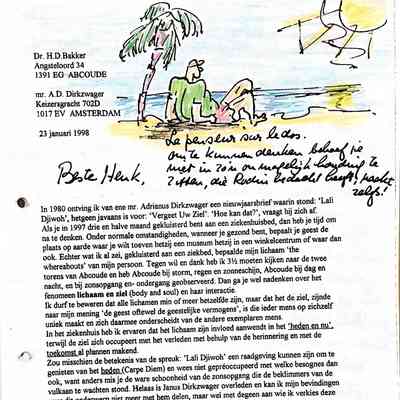 Dr. H.D.Bakker
Angsteloord 34
1391 EG ABCOUDE
mr. A.D. Dirkzwager
Keizersgracht 702D
1017 EV AMSTERDAM
23 januari 1998
Le penseur sur le dos.
om te kunnen denken behoef je
niet in zo'n onmogelijk houding te
zitten, die Rodin bedacht heeft,
zelfs!
Beste Henk,
In 1980 ontving ik van ene mr. Adrianus Dirkzwager een nieuwjaarsbrief waarin stond: 'Lali
Djiwoh', hetgeen javaans is voor: 'Vergeet Uw Ziel'. 'Hoe kan dat?', vraagt hij zich af.
Als je in 1997 drie en halve maand gekluisterd bent aan een ziekenhuisbed, dan heb je tijd om
na te denken. Onder normale omstandigheden, wanneer je gezond bent, bepaalt je geest de
plaats op aarde waar je wilt toeven hetzij een museum hetzij in een winkelcentrum of waar dan
ook. Echter wat ik al zei, gekluisterd aan een ziekbed, bepaalde mijn lichaam 'the
whereabouts' van mijn persoon. Tegen wil en dank heb ik 3½ moeten kijken naar de twee
torens van Abcoude en heb Abcoude bij storm, regen en zonneschijn, Abcoude bij dag en
nacht, en bij zonsopgang en- ondergang geobserveerd. Dan ga je wel nadenken over het
fenomeen lichaam en ziel (body and soul) en haar interactie.
Ik durf te beweren dat alle lichamen min of meer hetzelfde zijn, maar dat de ziel, zijnde
naar mijn mening 'de geest oftewel de geestelijke vermogens', is die ieder mens op zichzelf
uniek maakt en zich daarmee onderscheidt van de andere exemplaren mens.
In het ziekenhuis heb ik ervaren dat het lichaam zijn invloed aanwendt in het 'heden en nu',
terwijl de ziel zich occupeert met het verleden met behulp van de herinnering en met de
toekomst al plannen makend.
Zou misschien de betekenis van de spreuk: 'Lali Djiwoh' een raadgeving kunnen zijn om te
genieten van het heden (Carpe Diem) en wees niet gepreoccupeerd met welke besognes dan
ook, want anders mis je de ware schoonheid van de zonsopgang die de beklimmers van de
vulkaan te wachten stond. Helaas is Janus Dirkzwager overleden en kan ik mijn bevindingen
niet meer met hem delen, maar wel met degeen aan wie ik verkies deze